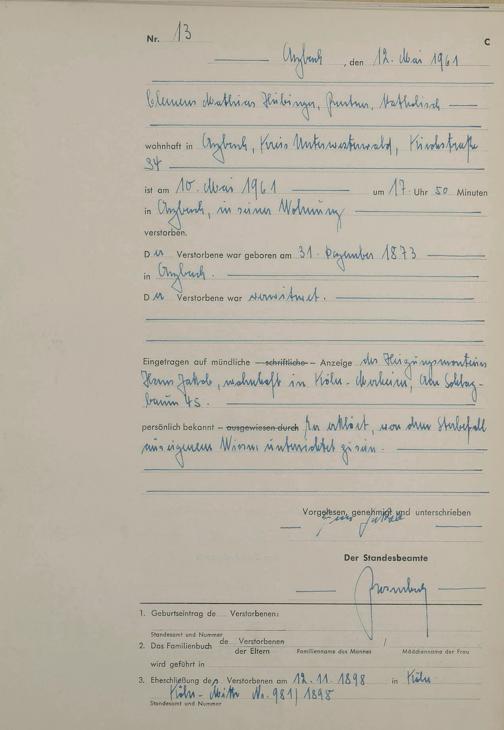 Nr. 13 C
Arzbach, den 12. Mai 1961
Clemens Mathias Hübinger, Rentner, katholisch
wohnhaft in Arzbach, Kreis Unterwesterwald, Kirchstraße
34
ist am 10. Mai 1961 um 17 Uhr 50 Minuten
in Arzbach, in seiner Wohnung
verstorben.
Der Verstorbene war geboren am 31. Dezember 1873
in Arzbach.
Der Verstorbene war verwitwet.
Eingetragen auf mündliche – schriftliche – Anzeige des Heizungsmonteurs
Hans Jakob, wohnhaft in Köln-Merheim, Am
baum 45.
persönlich bekannt – ausgewiesen durch Er erklärt, von dem Sterbefall
aus eigenem Wissen unterrichtet zu sein.
Vorgelesen, genehmigt und unterschrieben
Der Standesbeamte
1. Geburtseintrag de Verstorbenen:
Standesamt und Nummer
2. Das Familienbuch de Verstorbenen /
der Eltern Familienname des Mannes Mädchenname der Frau
wird geführt in
3. Eheschließung des Verstorbenen am 12.11.1898 in Köln
Köln-Mitte No. 981/1898
Standesamt und Nummer